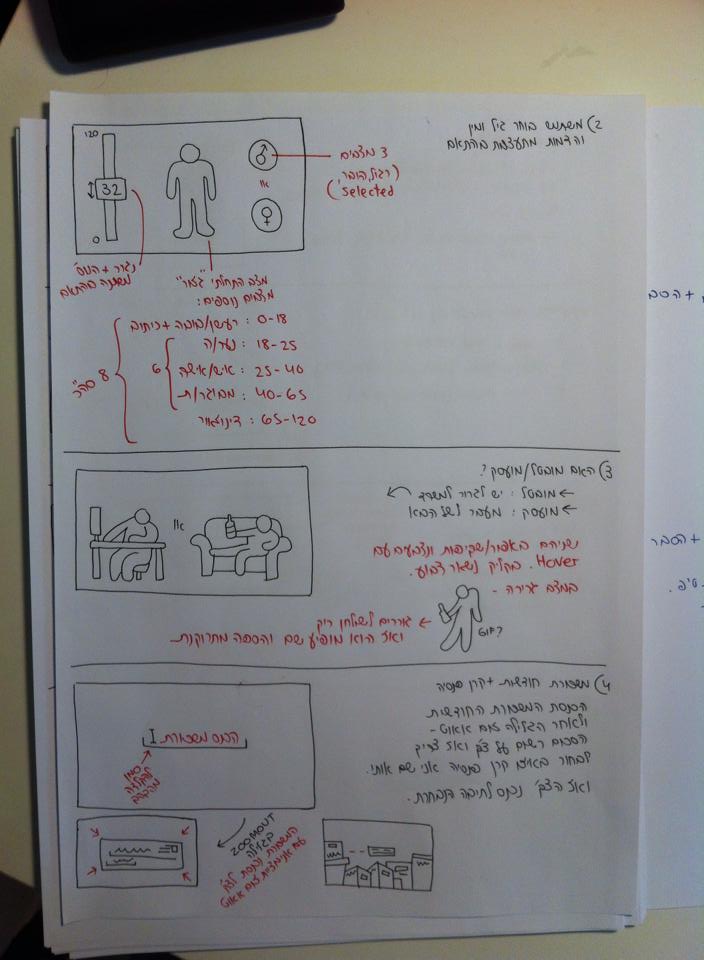 2) משתמש בוחר גיל ומין
והדמות מתעצבת בהתאם
120
32
0
או
3 מצבים
(רגיל, הובר,
selected)
גרור + הטס'
משתנה בהתאם
מצב התחלתי "גמור"
מצבים נוספים:
0-18 : רעשן/בובה + כיתוב
18-25 : נער/ה
25-40 : איש/אישה
40-65 : מבוגר/ת
65-120 : דינוזאור
6
8 סה"כ
3) האם מובטל/מועסק?
← מובטל : יש לגרור למשרד
← מועסק : מעבר לשלב הבא
או
שניהם באפור/שקיפות ונצבעים עם
Hover. בקליק נשאר צבוע.
במצב גרירה -
← גוררים לשולחן ריק
ואז הוא מופיע שם והספה מתרוקנת.
GIF?
4) משכורת חודשית + קרן פנסיה
הכנסת המשכורת החודשית
ולאחר הגלילה זום אאוט -
הסכום רשום על צ'ק ואז צריך
לבחור באיזו קרן פנסיה אני שם אותו.
ואז הצ'ק נכנס לתיבה הנבחרת.
הכנס משכורת
סמן
הקלדה
מהבהב
ZOOMOUT
בגלילה
המשכורת נכנסת לצ'ק
עם אנימציית זום אאוט
+ הסבר
+ הסבר
טיפ.